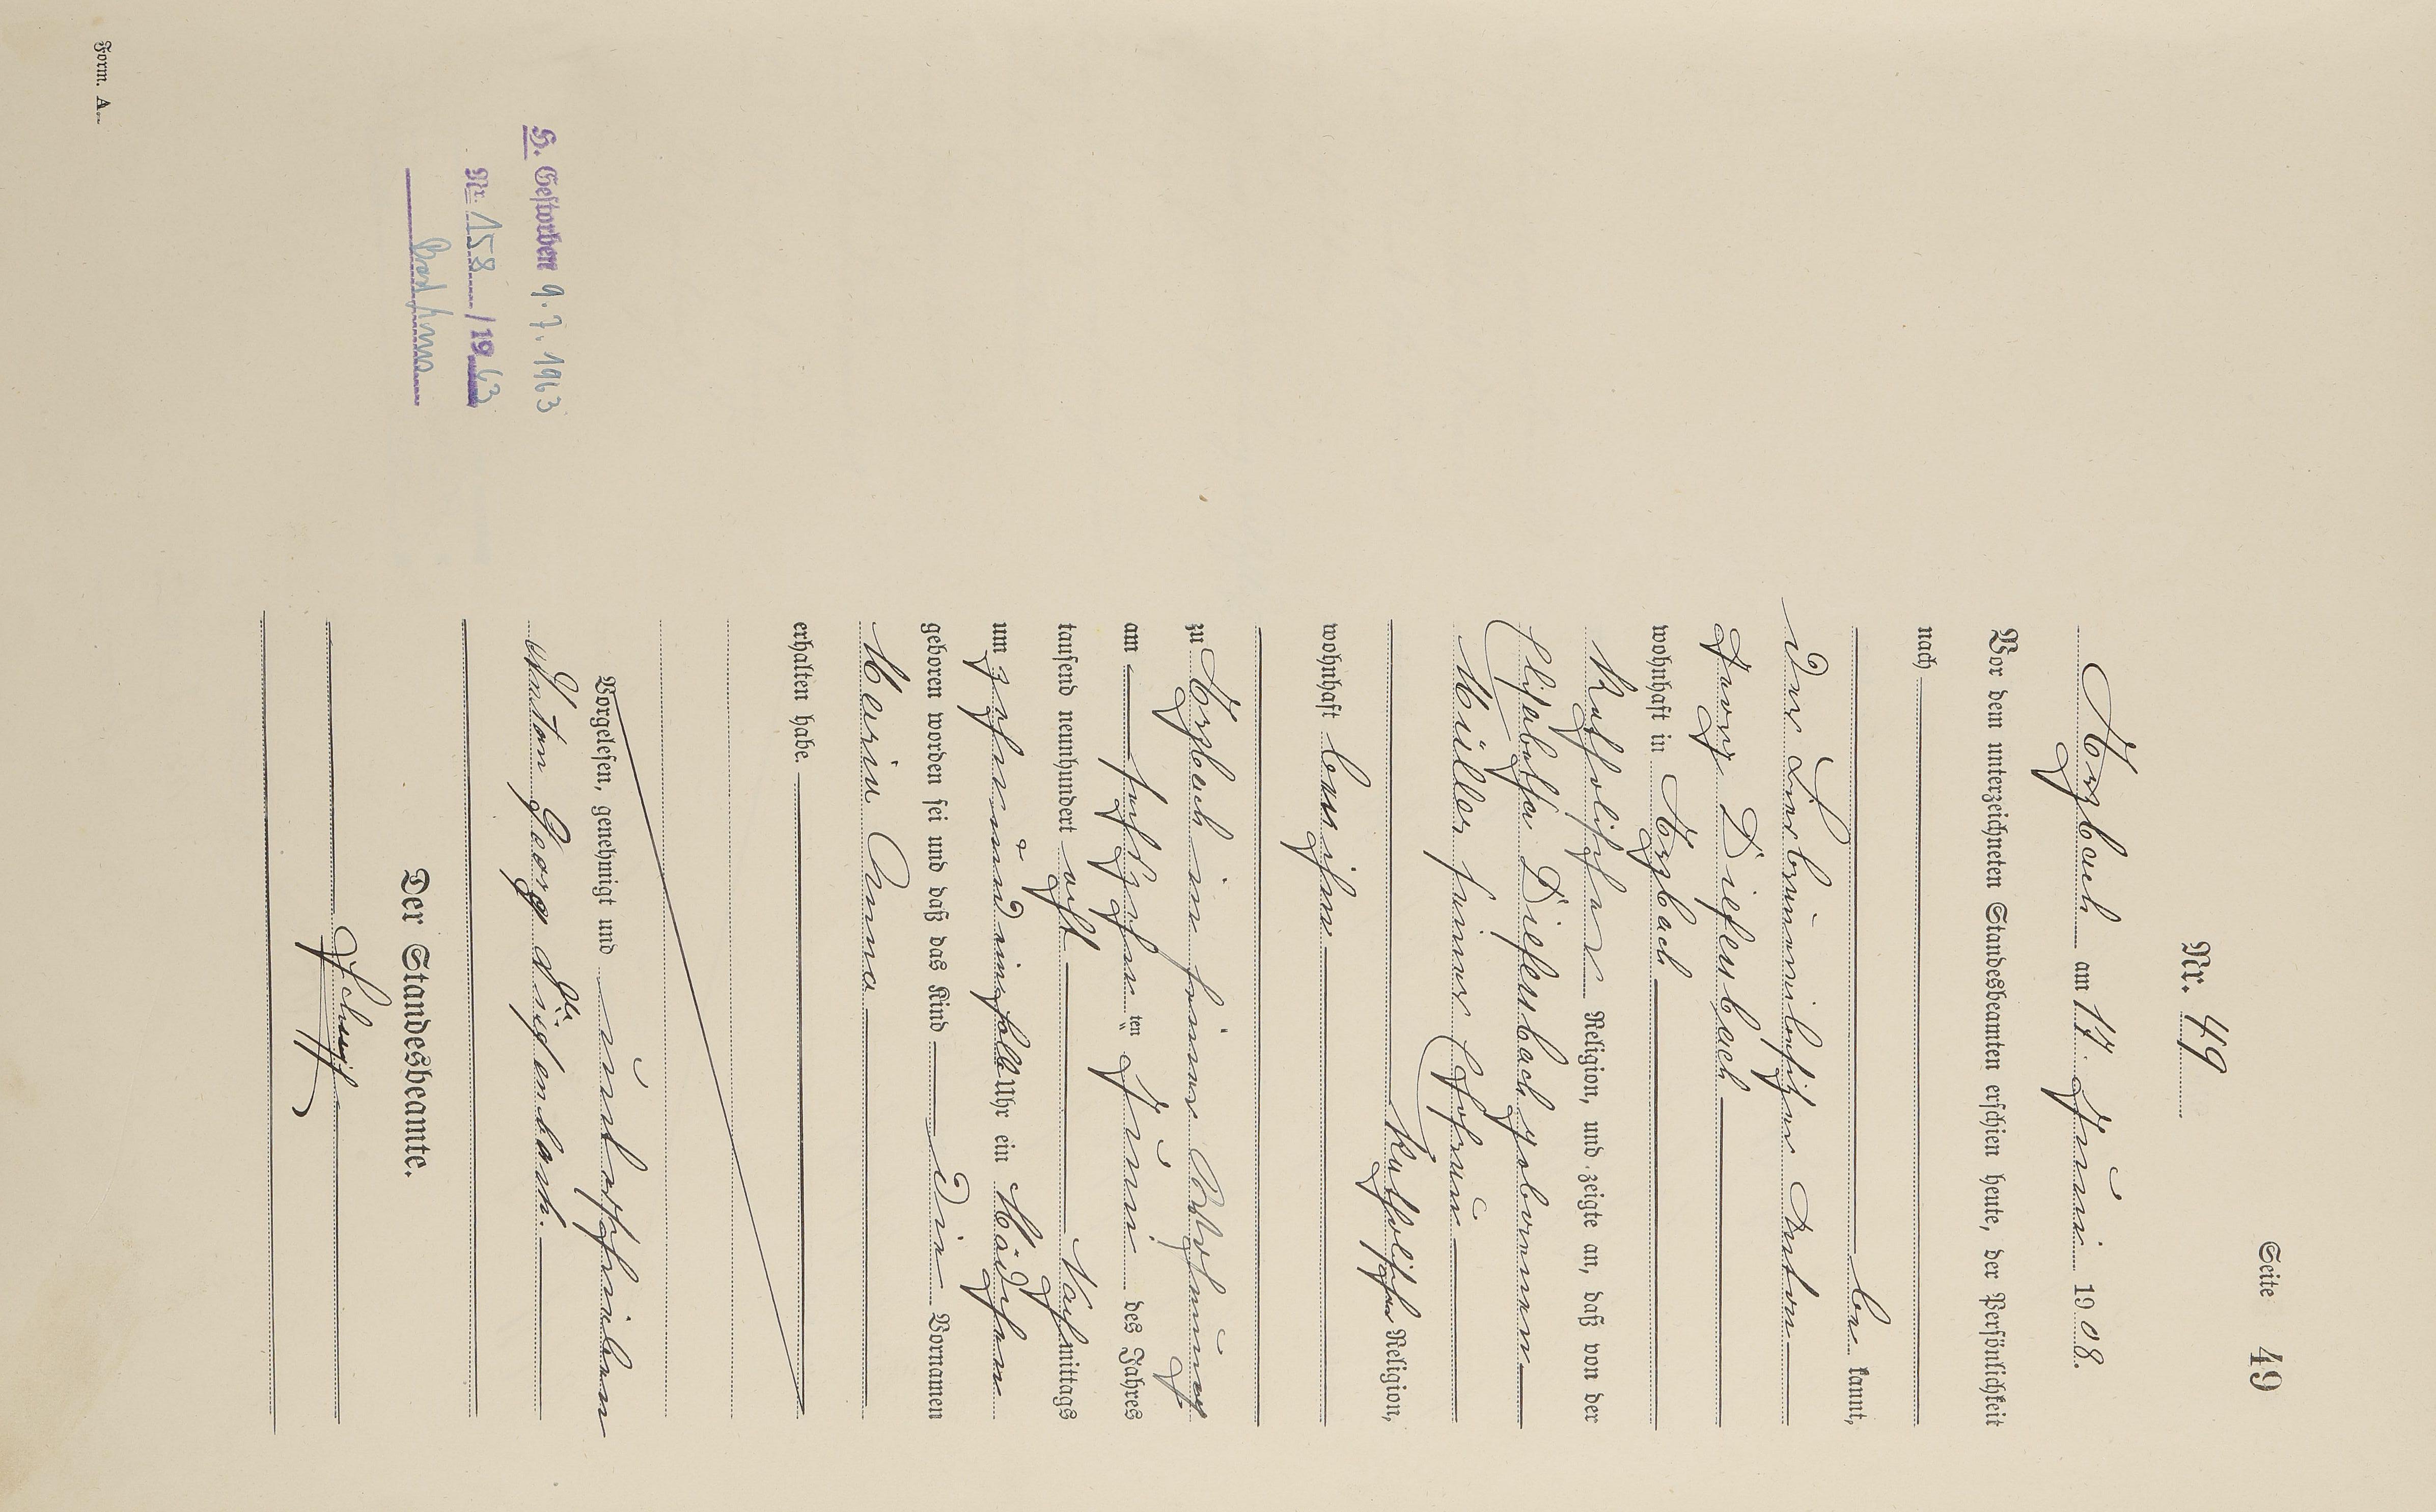 Seite 49
Nr. 49
Arzbach am 17. Juni 1908.
Vor dem unterzeichneten Standesbeamten erschien heute, der Persönlichkeit
nach
be kannt,
Der Anton
Georg Diefenbach
wohnhaft in Arzbach
katholischer Religion, und zeigte an, daß von der
Elisabetha Diefenbach geborenen
Müller seiner Ehefrau
katholischer Religion,
wohnhaft bei ihm
zu Arzbach in seiner Wohnung
am fünfzehn ten Juni des Jahres
tausend neunhundert acht Nachmittags
um zehn und einhalb Uhr ein Mädchen
geboren worden sei und daß das Kind die Vornamen
Maria Anna
erhalten habe.
Vorgelesen, genehmigt und unterschrieben
Anton Georg Diefenbach.
Der Standesbeamte.
H. Gestorben 9.7.1963
Nr. 158 / 1963
Form. A.